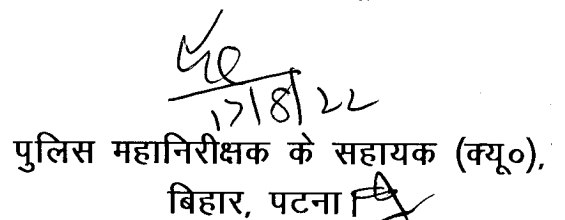 17/8/22
पुलिस महानिरीक्षक के सहायक (क्यू०),
बिहार, पटना।